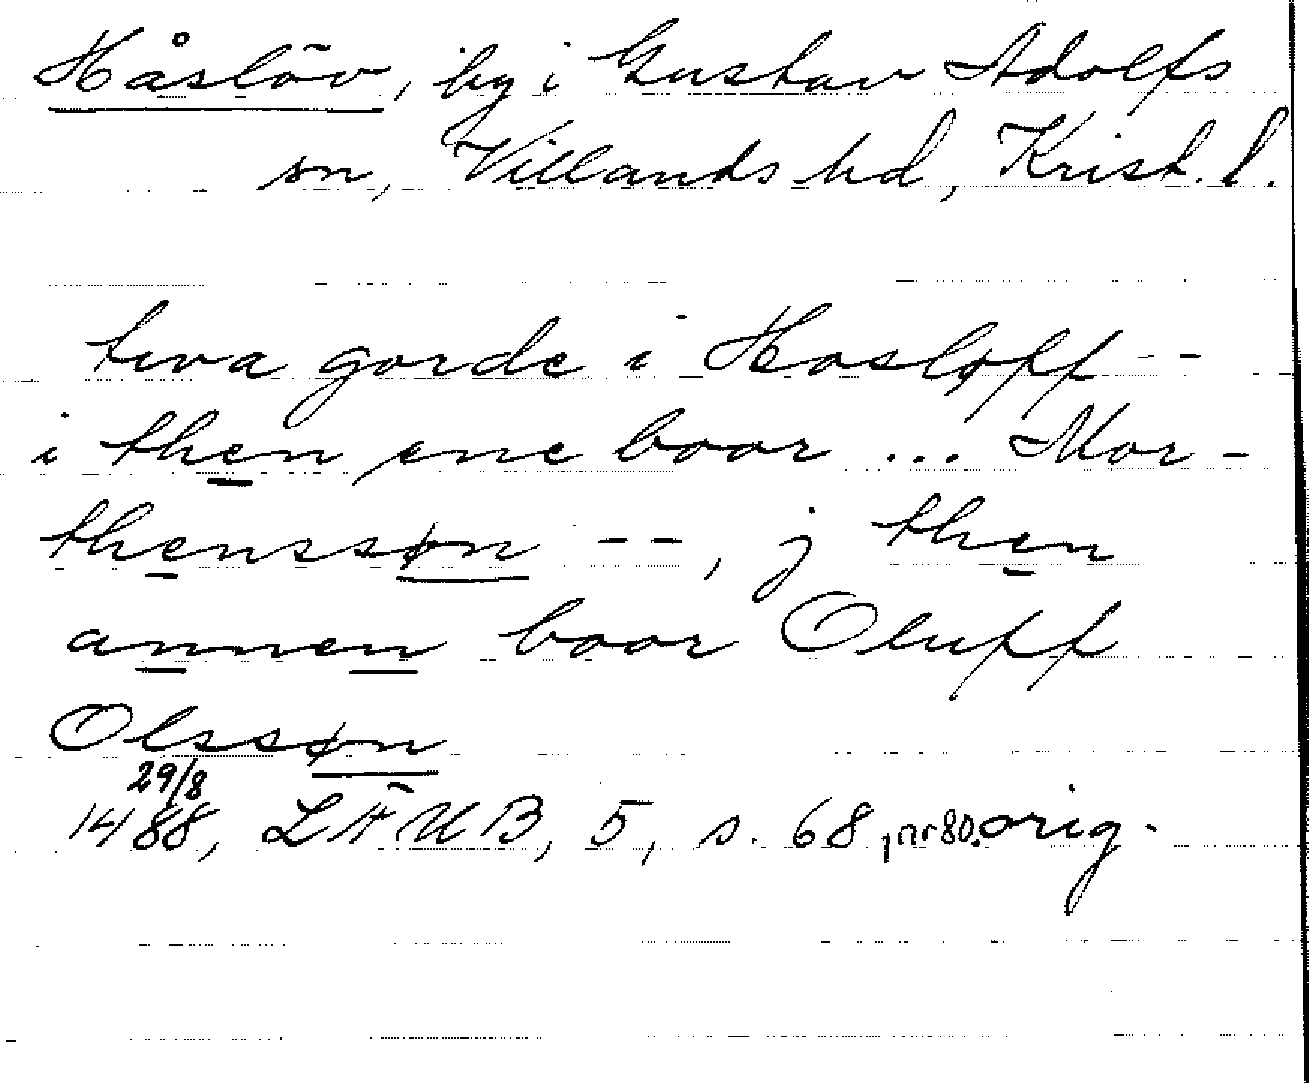 Håslöv, by i Gustav Adolfs
sn, Villands hd, Krist. l.
twa gorde i Hosløff --
i then ene boor ... Mor-
thenssøn --, j then
annen boor Oluff
Olssøn
29/8
1488, LÄUB, 5, s. 68, nr 80. orig.